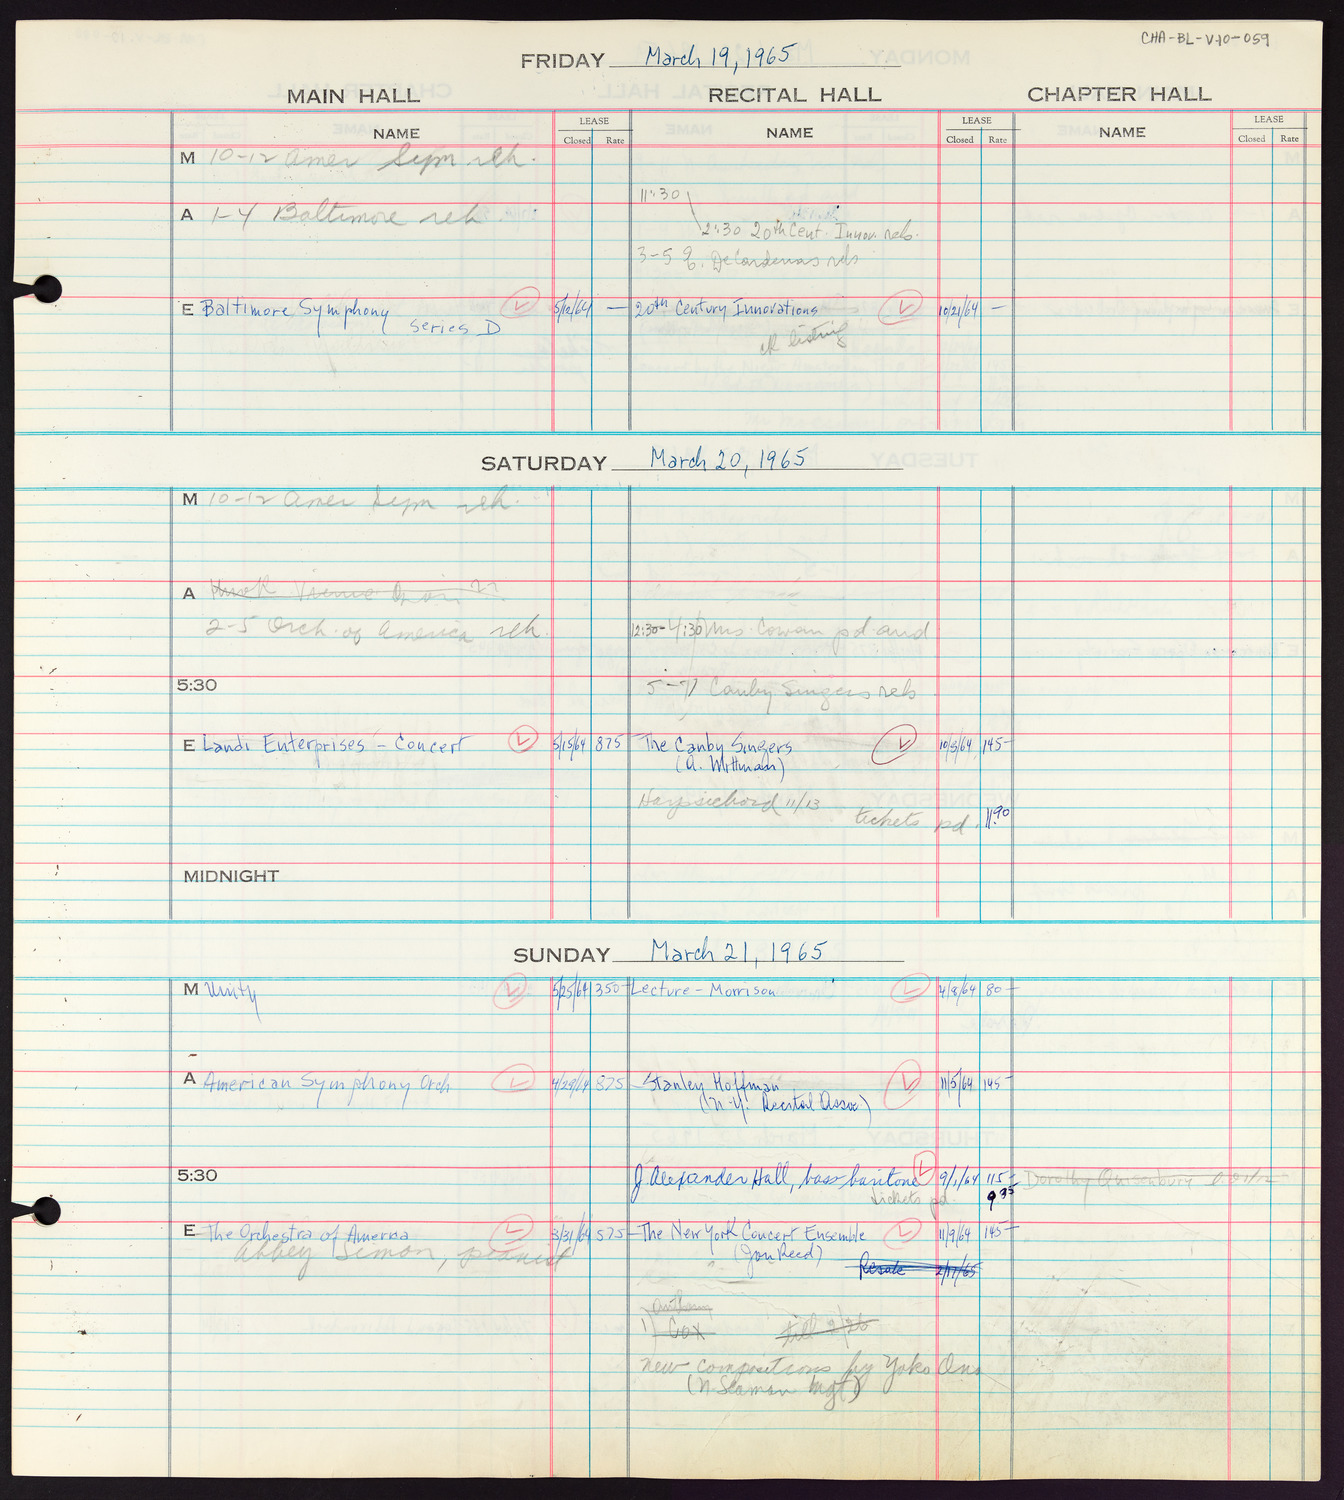 CHA-BL-V10-059
FRIDAY March 19, 1965
MAIN HALL RECITAL HALL CHAPTER HALL
NAME LEASE Closed Rate NAME LEASE Closed Rate NAME LEASE Closed Rate
M 10-12 Amer Sym reh.
11:30
A 1-4 Baltimore reh
2:30 20th Cent. Innov. reh.
3-5 DeCardenas reh
E Baltimore Symphony 5/12/64 — 20th Century Innovations 10/21/64 —
Series D
ck listing
SATURDAY March 20, 1965
M 10-12 Amer Sym reh.
A Hurok Vienna
2-5 Orch. of America reh. 12:30-4:30 Mrs. Cowan pd and
5:30 5-7 Canby Singers reh
E Landi Enterprises - Concert 5/15/64 875 The Canby Singers 10/5/64 145-
(A. Wittman)
Harpsichord 11/13
tickets pd. 11.90
MIDNIGHT
SUNDAY March 21, 1965
M Unity 5/25/64 350- Lecture - Morrison 4/8/64 80-
A American Symphony Orch 4/29/64 875- Stanley Hoffman 11/5/64 145-
(N.Y. Recital Assoc)
5:30 J. Alexander Hall, bass baritone 9/1/64 115- Dorothy Quisenbury
tickets pd. 9 35
E The Orchestra of America 3/31/64 575- The New York Concert Ensemble 11/9/64 145-
Abbey Simon, pianist (Jon Reed)
Resale 2/17/65
Anthony
1) Cox till 2/26
new compositions by Yoko Ono
(N. Seaman Mgt)